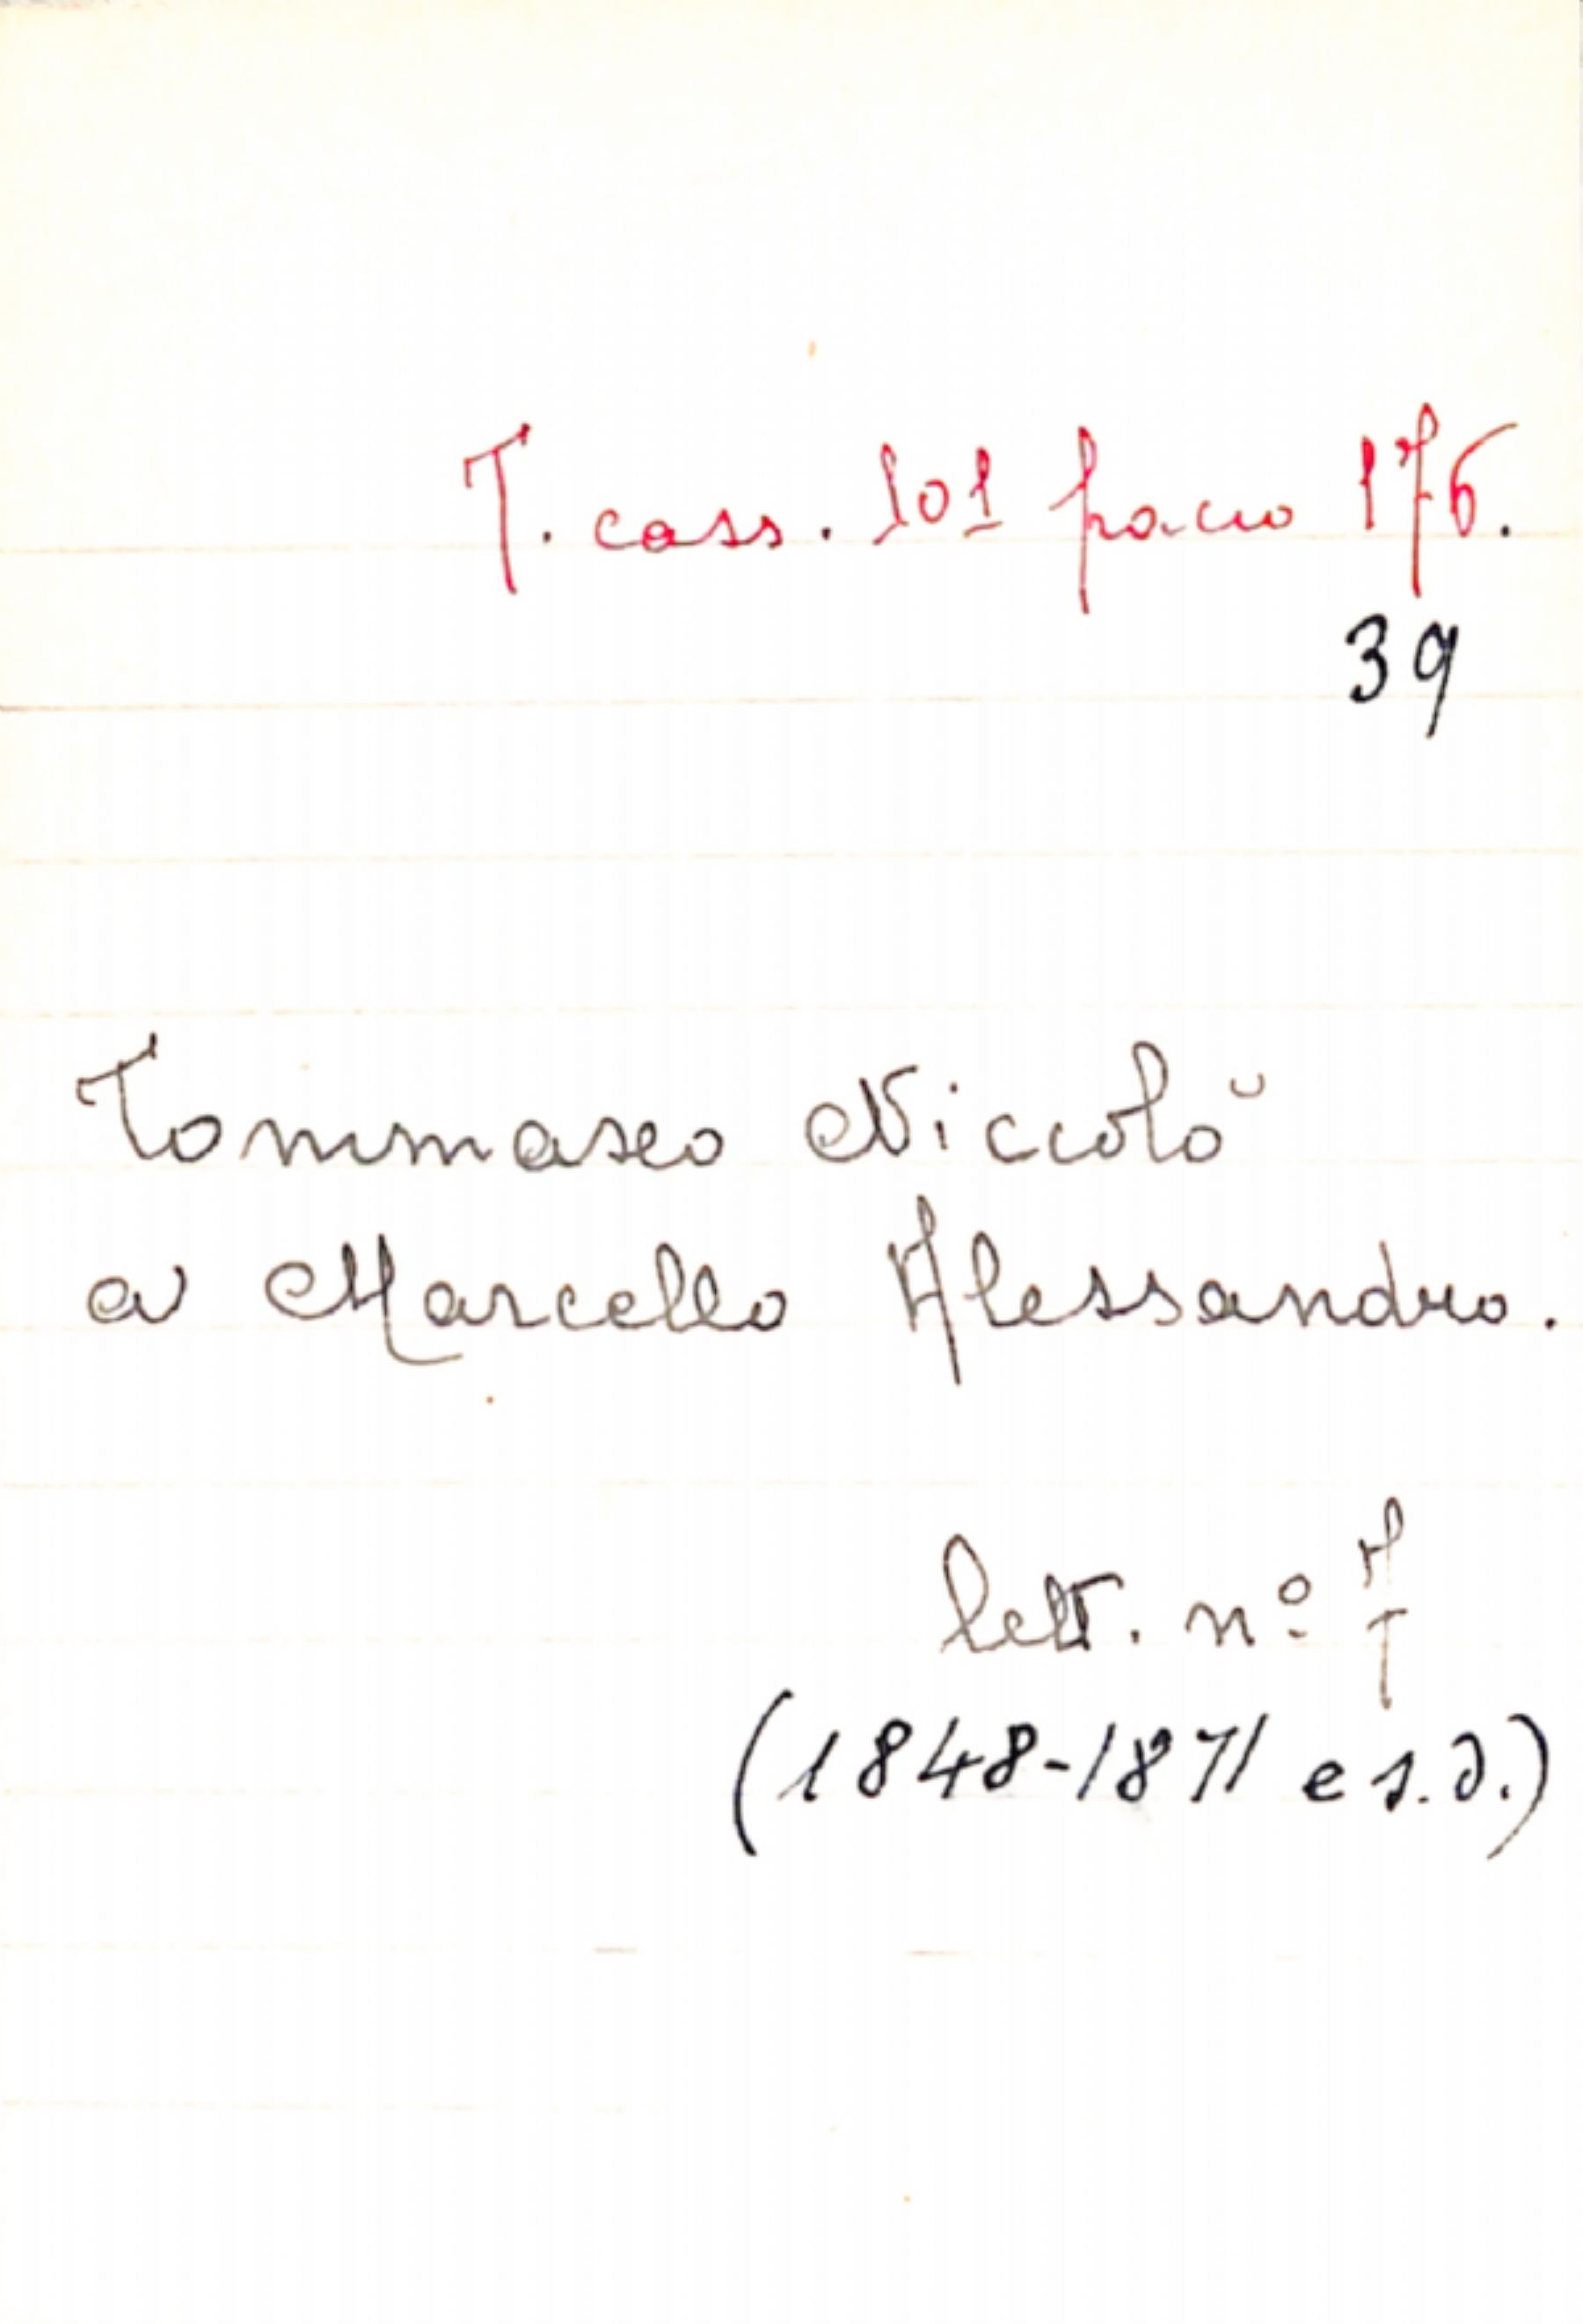 T. cass. 101 pacco 176.
39
Tommaseo Niccolò
a Marcello Alessandro.
lett. nº 7
(1848-1871 e s.d.)